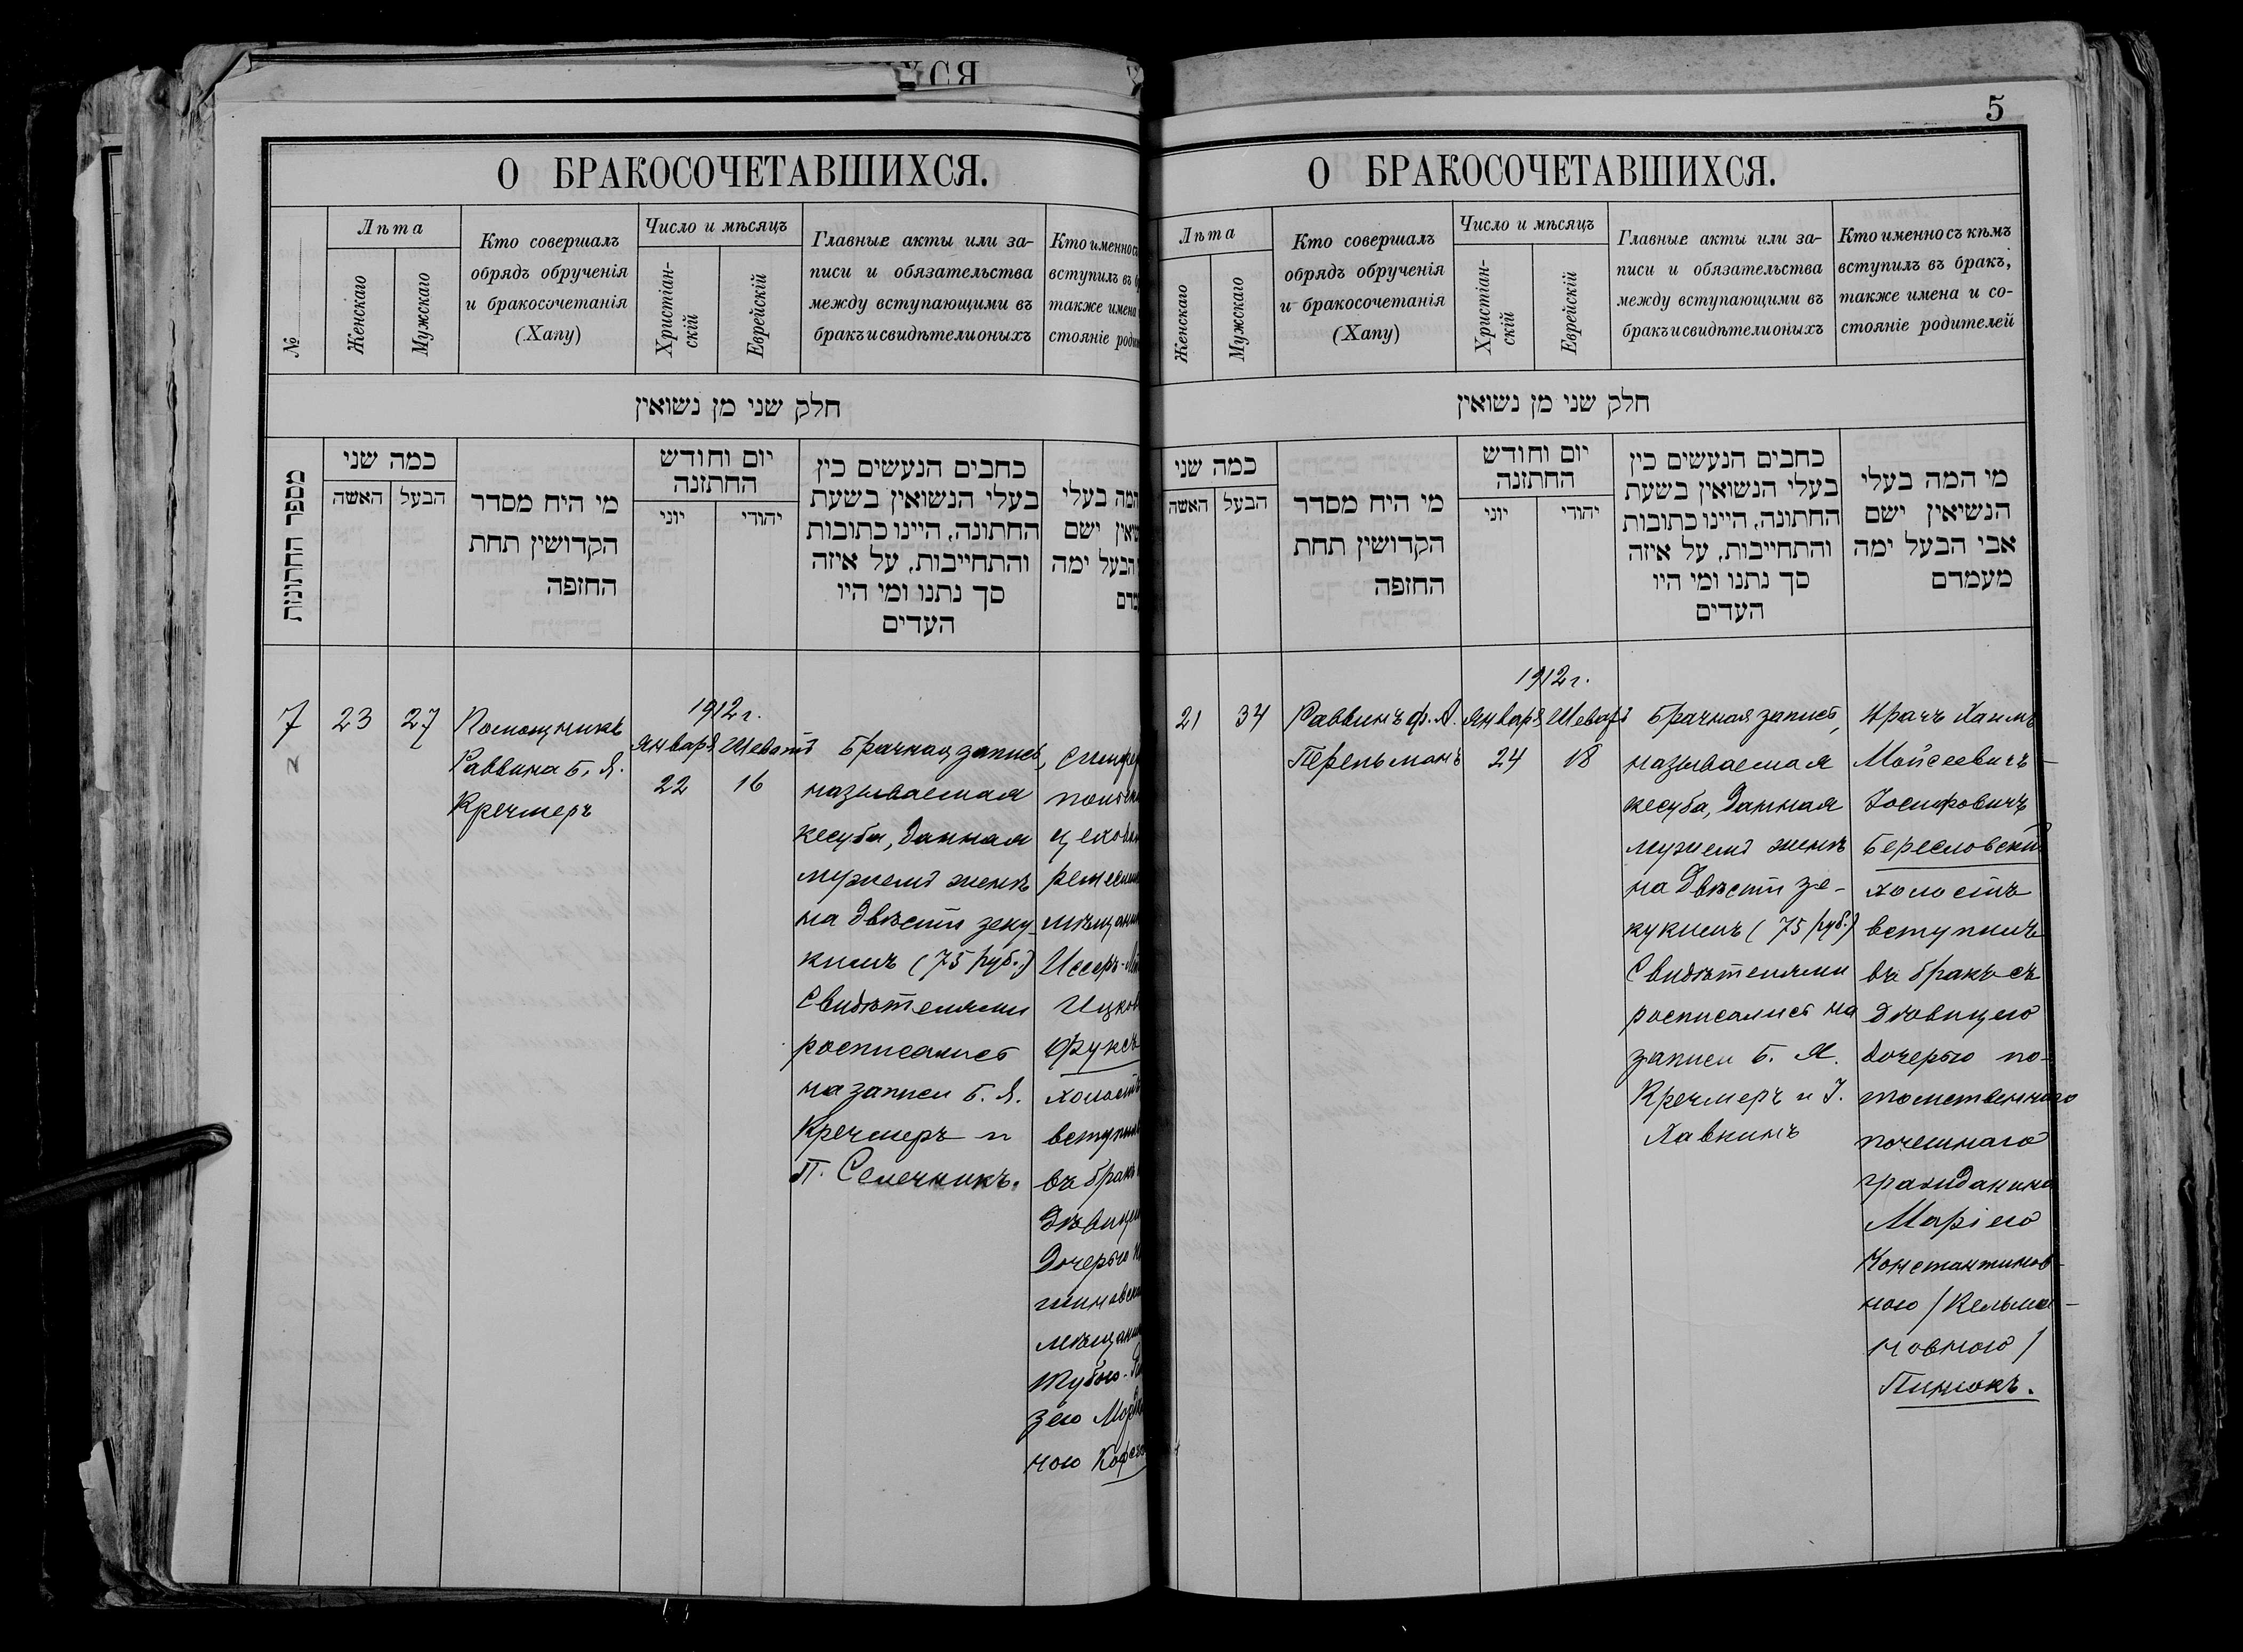 ИХСЯ
О БРАКОСОЧЕТАВШИХСЯ.
№
Лѣта
Женскаго
Мужскаго
Кто совершалъ
обрядъ обрученія
и бракосочетанія
(Хапу)
Число и мѣсяцъ
Христіан-
скій
Еврейскій
Главные акты или за-
писи и обязательства
между вступающими въ
бракъ и свидѣтели оныхъ
Кто именно съ
вступилъ въ б
также имена
стояніе роди
חלק שני מן נשואין
מספר החתונות
כמה שני
האשה
הבעל
מי היח מסדר
הקדושין תחת
החופה
יום וחודש
החתונה
יוני
יהודי
כתבים הנעשים בין
בעלי הנשואין בשעת
החתונה, היינו כתובות
והתחייבות, על איזה
סך נתנו ומי היו
העדים
המה בעלי
שאין ישם
הבעל ימה
מדם
7
23
27
Помощникъ
Раввина Б. Я.
Кречмеръ
1912 г.
Января
22
Шеватъ
16
Брачная запись,
называемая
кесуба, данная
мужемъ женѣ
на двѣсти зеку-
кимъ (75 руб.)
Свидѣтелями
росписались
на записи Б. Я.
Кречмеръ и
П. Селечникъ.
Симфер
польск
цехов
ремеслен
мѣщанин
Иссеръ-
Ицков
Фуксъ
холостъ
вступилъ
въ бракъ
дѣвицею
дочерью
шиневск
мѣщанин
Тубою-
зею Морд
ною
5
О БРАКОСОЧЕТАВШИХСЯ.
Лѣта
Женскаго
Мужскаго
Кто совершалъ
обрядъ обрученія
и бракосочетанія
(Хапу)
Число и мѣсяцъ
Христіан-
скій
Еврейскій
Главные акты или за-
писи и обязательства
между вступающими въ
бракъ и свидѣтели оныхъ
Кто именно съ кѣмъ
вступилъ въ бракъ,
также имена и со-
стояніе родителей
חלק שני מן נשואין
כמה שני
האשה
הבעל
מי היח מסדר
הקדושין תחת
החופה
יום וחודש
החתונה
יוני
יהודי
כתבים הנעשים בין
בעלי הנשואין בשעת
החתונה, היינו כתובות
והתחייבות, על איזה
סך נתנו ומי היו
העדים
מי המה בעלי
הנשיאין ישם
אבי הבעל ימה
מעמדם
21
34
Раввинъ Ф. А.
Перельманъ
1912 г.
Января
24
Шеватъ
18
Брачная запись,
называемая
кесуба, данная
мужемъ женѣ
на двѣсти зе-
кукимъ (75 руб.)
Свидѣтелями
росписались на
записи Б. Я.
Кречмеръ и І.
Хавкинъ
Врачъ Хаимъ
Мойсеевичъ-
Іосифовичъ
Бересловскій
холостъ
вступилъ
въ бракъ съ
дѣвицею
дочерью по-
томственнаго
почетнаго
гражданина
Маріею
Константинов-
ною /Кельма-
новною/
Пинюкъ.